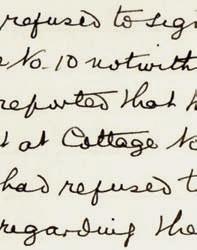 refused to sign
No. 10 notwith
reported that h
t at Cottage No
had refused t
regarding the